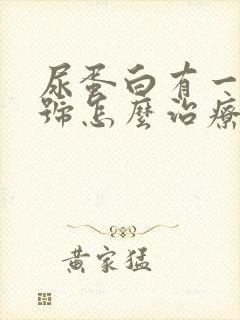 尿蛋白有一
號怎麼治療
黃家猛